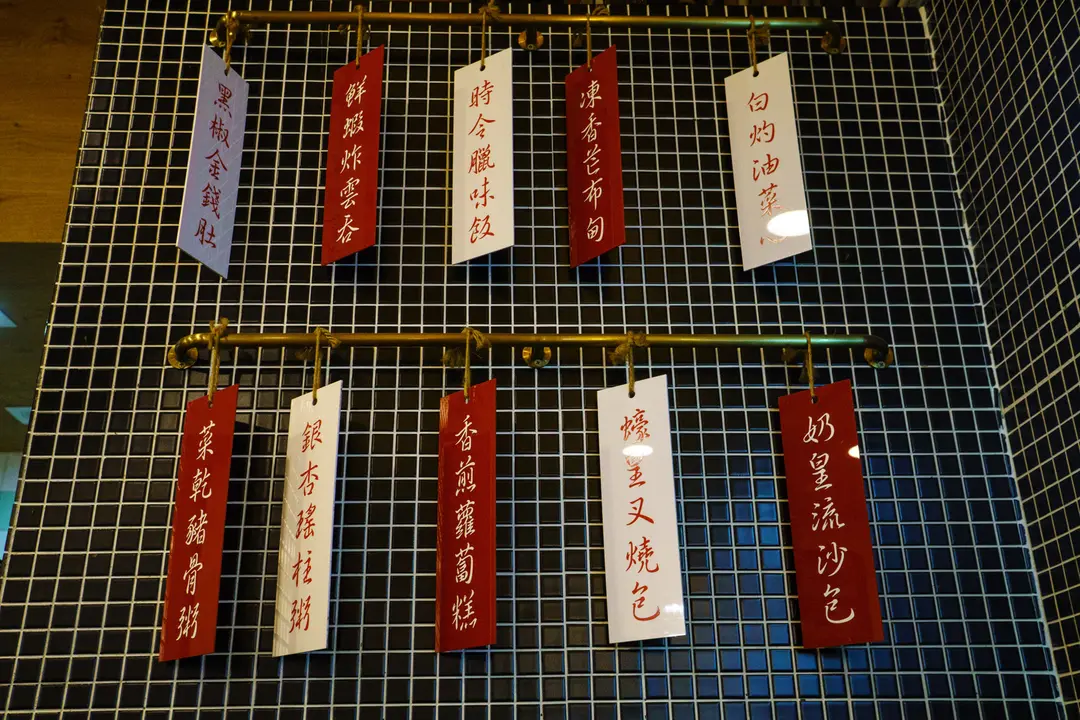 黑椒金錢肚
鮮蝦炸雲吞
時令臘味飯
凍香芒布甸
白灼油菜心
菜乾豬骨粥
銀杏瑤柱粥
香煎蘿蔔糕
蠔皇叉燒包
奶皇流沙包